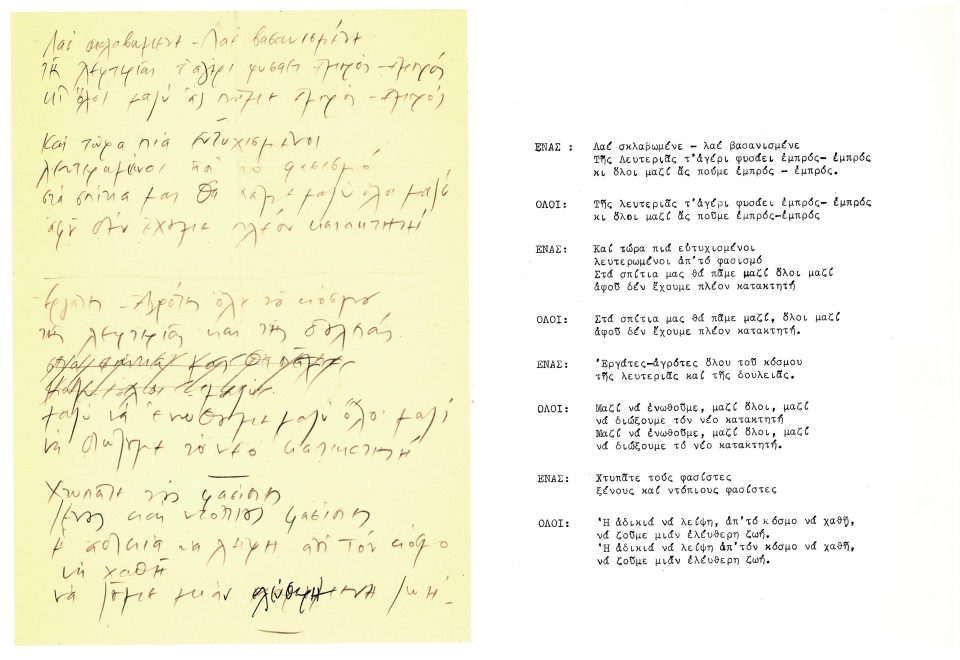 Λαέ σκλαβωμένε - Λαέ βασανισμένε
τῆς λευτεριᾶς τ'ἀγέρι φυσάει ἐμπρός - ἐμπρός
κι ὅλοι μαζύ ἄς ποῦμε ἐμπρός - ἐμπρός
Καί τώρα πιά εὐτυχισμένοι
λευτερωμένοι ἀπ' τό φασισμό
στά σπίτια μας θά πᾶμε μαζύ ὅλοι μαζύ
ἀφοῦ δέν ἔχουμε πλέον κατακτητή
Ἐργάτες - Ἀγρότες ὅλου τοῦ κόσμου
τῆς λευτεριᾶς καί τῆς δουλειᾶς
μαζύ νά ἑνωθοῦμε μαζύ ὅλοι μαζί
νά διώξουμε τό νέο κατακτητή
Χτυπᾶτε τούς φασίστες
ξένους καί ντόπιους φασίστες
Ἡ ἀδικία νά λείψη ἀπό τόν κόσμο
νά χαθῆ
νά ζοῦμε μιάν ζωή.
ΕΝΑΣ : Λαέ σκλαβωμένε - λαέ βασανισμένε
Τῆς λευτεριᾶς τ'ἀγέρι φυσάει ἐμπρός- ἐμπρός
κι ὅλοι μαζί ἄς ποῦμε ἐμπρός - ἐμπρός.
ΟΛΟΙ: Τῆς λευτεριᾶς τ'ἀγέρι φυσάει ἐμπρός- ἐμπρός
κι ὅλοι μαζί ἄς ποῦμε ἐμπρός-ἐμπρός
ΕΝΑΣ: Καί τώρα πιά εὐτυχισμένοι
λευτερωμένοι ἀπ'τό φασισμό
Στά σπίτια μας θά πᾶμε μαζί ὅλοι μαζί
ἀφοῦ δέν ἔχουμε πλέον κατακτητή
ΟΛΟΙ: Στά σπίτια μας θά πᾶμε μαζί, ὅλοι μαζί
ἀφοῦ δέν ἔχουμε πλέον κατακτητή.
ΕΝΑΣ: Ἐργάτες-ἀγρότες ὅλου τοῦ κόσμου
τῆς λευτεριᾶς καί τῆς δουλειᾶς.
ΟΛΟΙ: Μαζί νά ἑνωθοῦμε, μαζί ὅλοι, μαζί
νά διώξουμε τόν νέο κατακτητή
Μαζί νά ἑνωθοῦμε, μαζί ὅλοι, μαζί
νά διώξουμε τό νέο κατακτητή.
ΕΝΑΣ: Χτυπᾶτε τούς φασίστες
ξένους καί ντόπιους φασίστες
ΟΛΟΙ: Ἡ ἀδικιά νά λείψη, ἀπ'τό κόσμο νά χαθῆ,
νά ζοῦμε μιάν ἐλεύθερη ζωή.
Ἡ ἀδικιά νά λείψη ἀπ'τόν κόσμο νά χαθῆ,
νά ζοῦμε μιάν ἐλεύθερη ζωή.